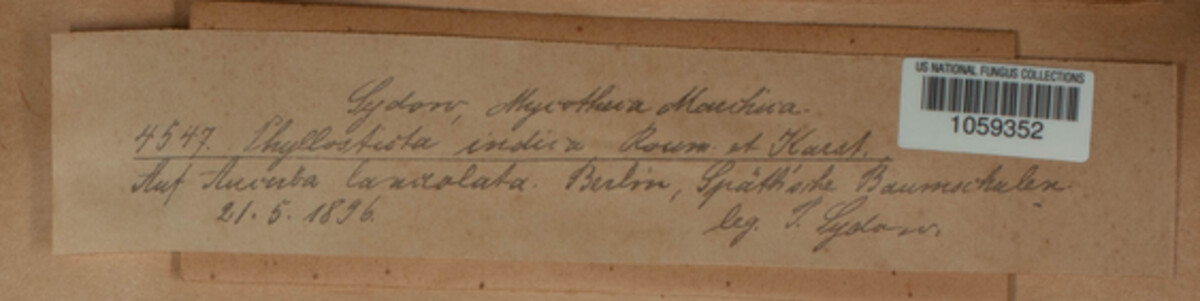 US NATIONAL FUNGUS COLLECTIONS
1059352
Sydow, Mycotheca Marchica.
4547. Phyllosticta indica Roum. et Karst.
Auf Aucuba lanceolata. Berlin, Späth'sche Baumschulen.
21. 5. 1896. leg. P. Sydow.